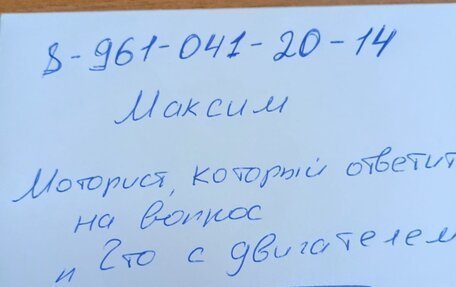 8-961-041-20-14
Максим
Моторист, который ответит
на вопрос
" Что с двигателем